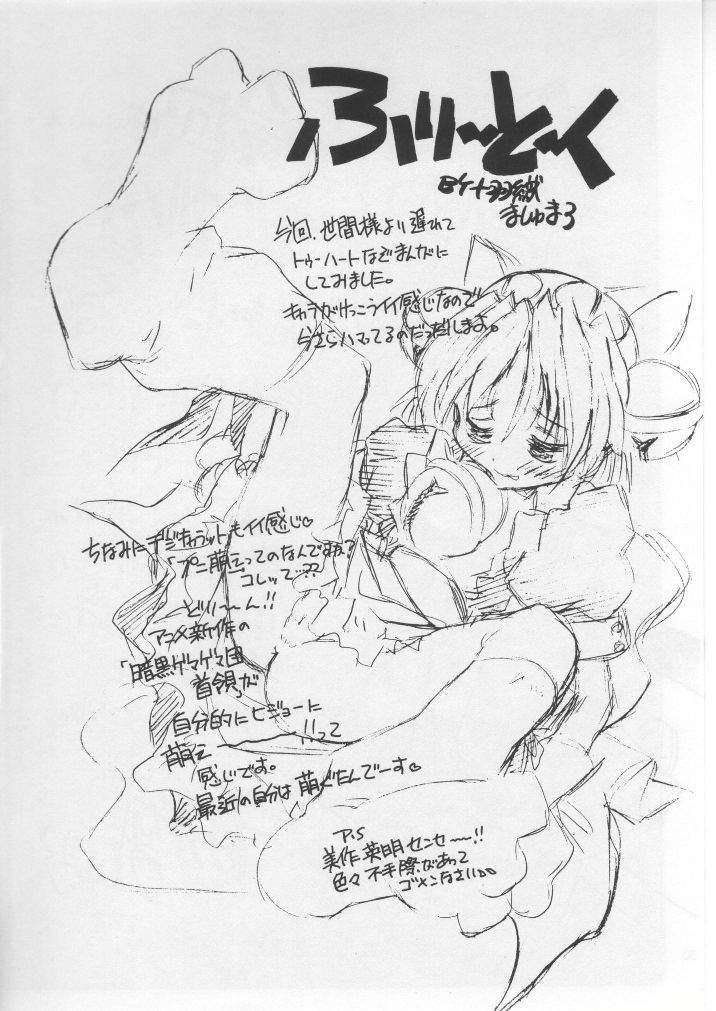 ふりーとーく
ましゅまろ
今回、世間様より遅れて
トゥーハートなどまんがに
してみました。
キャラがけっこうイイ感じなので
今さらハマってるのだっだしまよ。
ちなみにデジキャラットもイイ感じ♡
「プニ萌えってのなんですね?
コレッて…??
どりーーん!!
アニメ新作の
「暗黒ゲマゲマ団
首領」が
自分的にヒジョーに
萌えー!!って
感じです。
最近の自分は萌ぐたんでーす♡
P.S
美作英明センセーー!!
色々不手際があって
ゴメンなさい